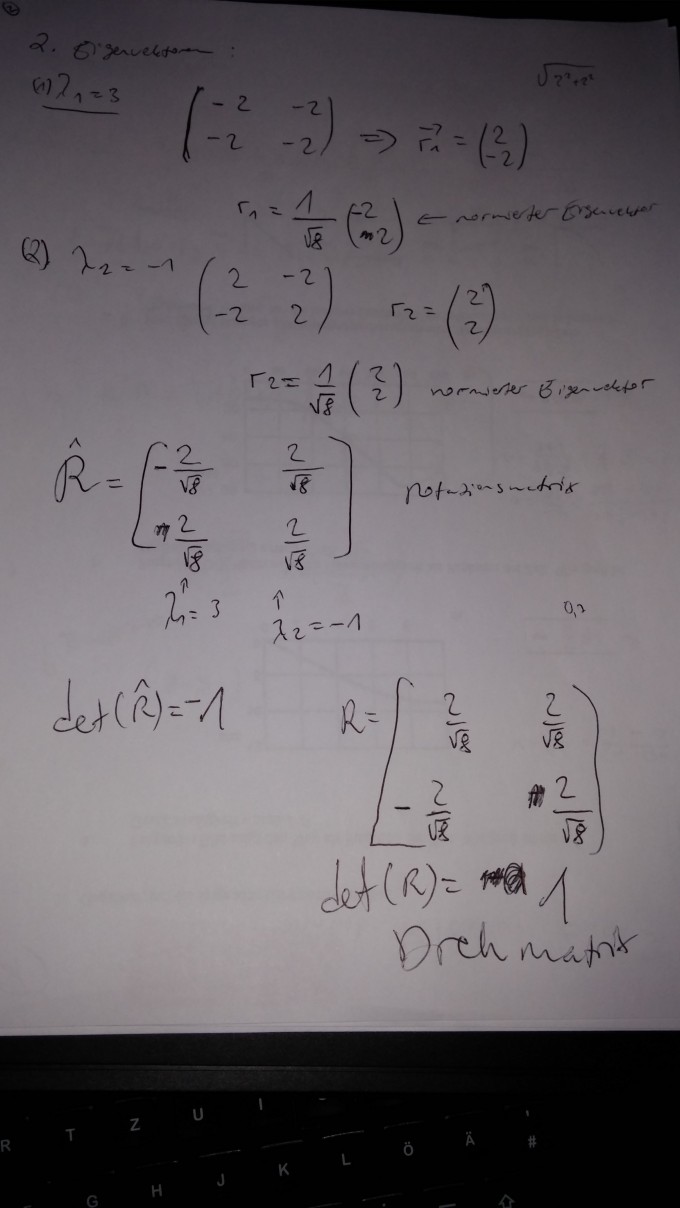 2
2. Eigenvektoren :
√2²+2²
(1) λ₁ = 3 ( -2 -2 ; -2 -2 ) => r₁ = ( 2 ; -2 )
r₁ = 1/√8 ( -2 ; 2 ) ← normierter Eigenvektor
(2) λ₂ = -1 ( 2 -2 ; -2 2 ) r₂ = ( 2 ; 2 )
r₂ = 1/√8 ( 2 ; 2 ) normierter Eigenvektor
R̂ = [ -2/√8 2/√8 ; 2/√8 2/√8 ] Rotazionsmatrix
↑ ↑
λ₁ = 3 λ₂ = -1
det(R̂) = -1
R = ( 2/√8 2/√8 ; -2/√8 2/√8 )
det(R) = 1
Drehmatrix
R T Z U I
G H J K L Ö Ä #